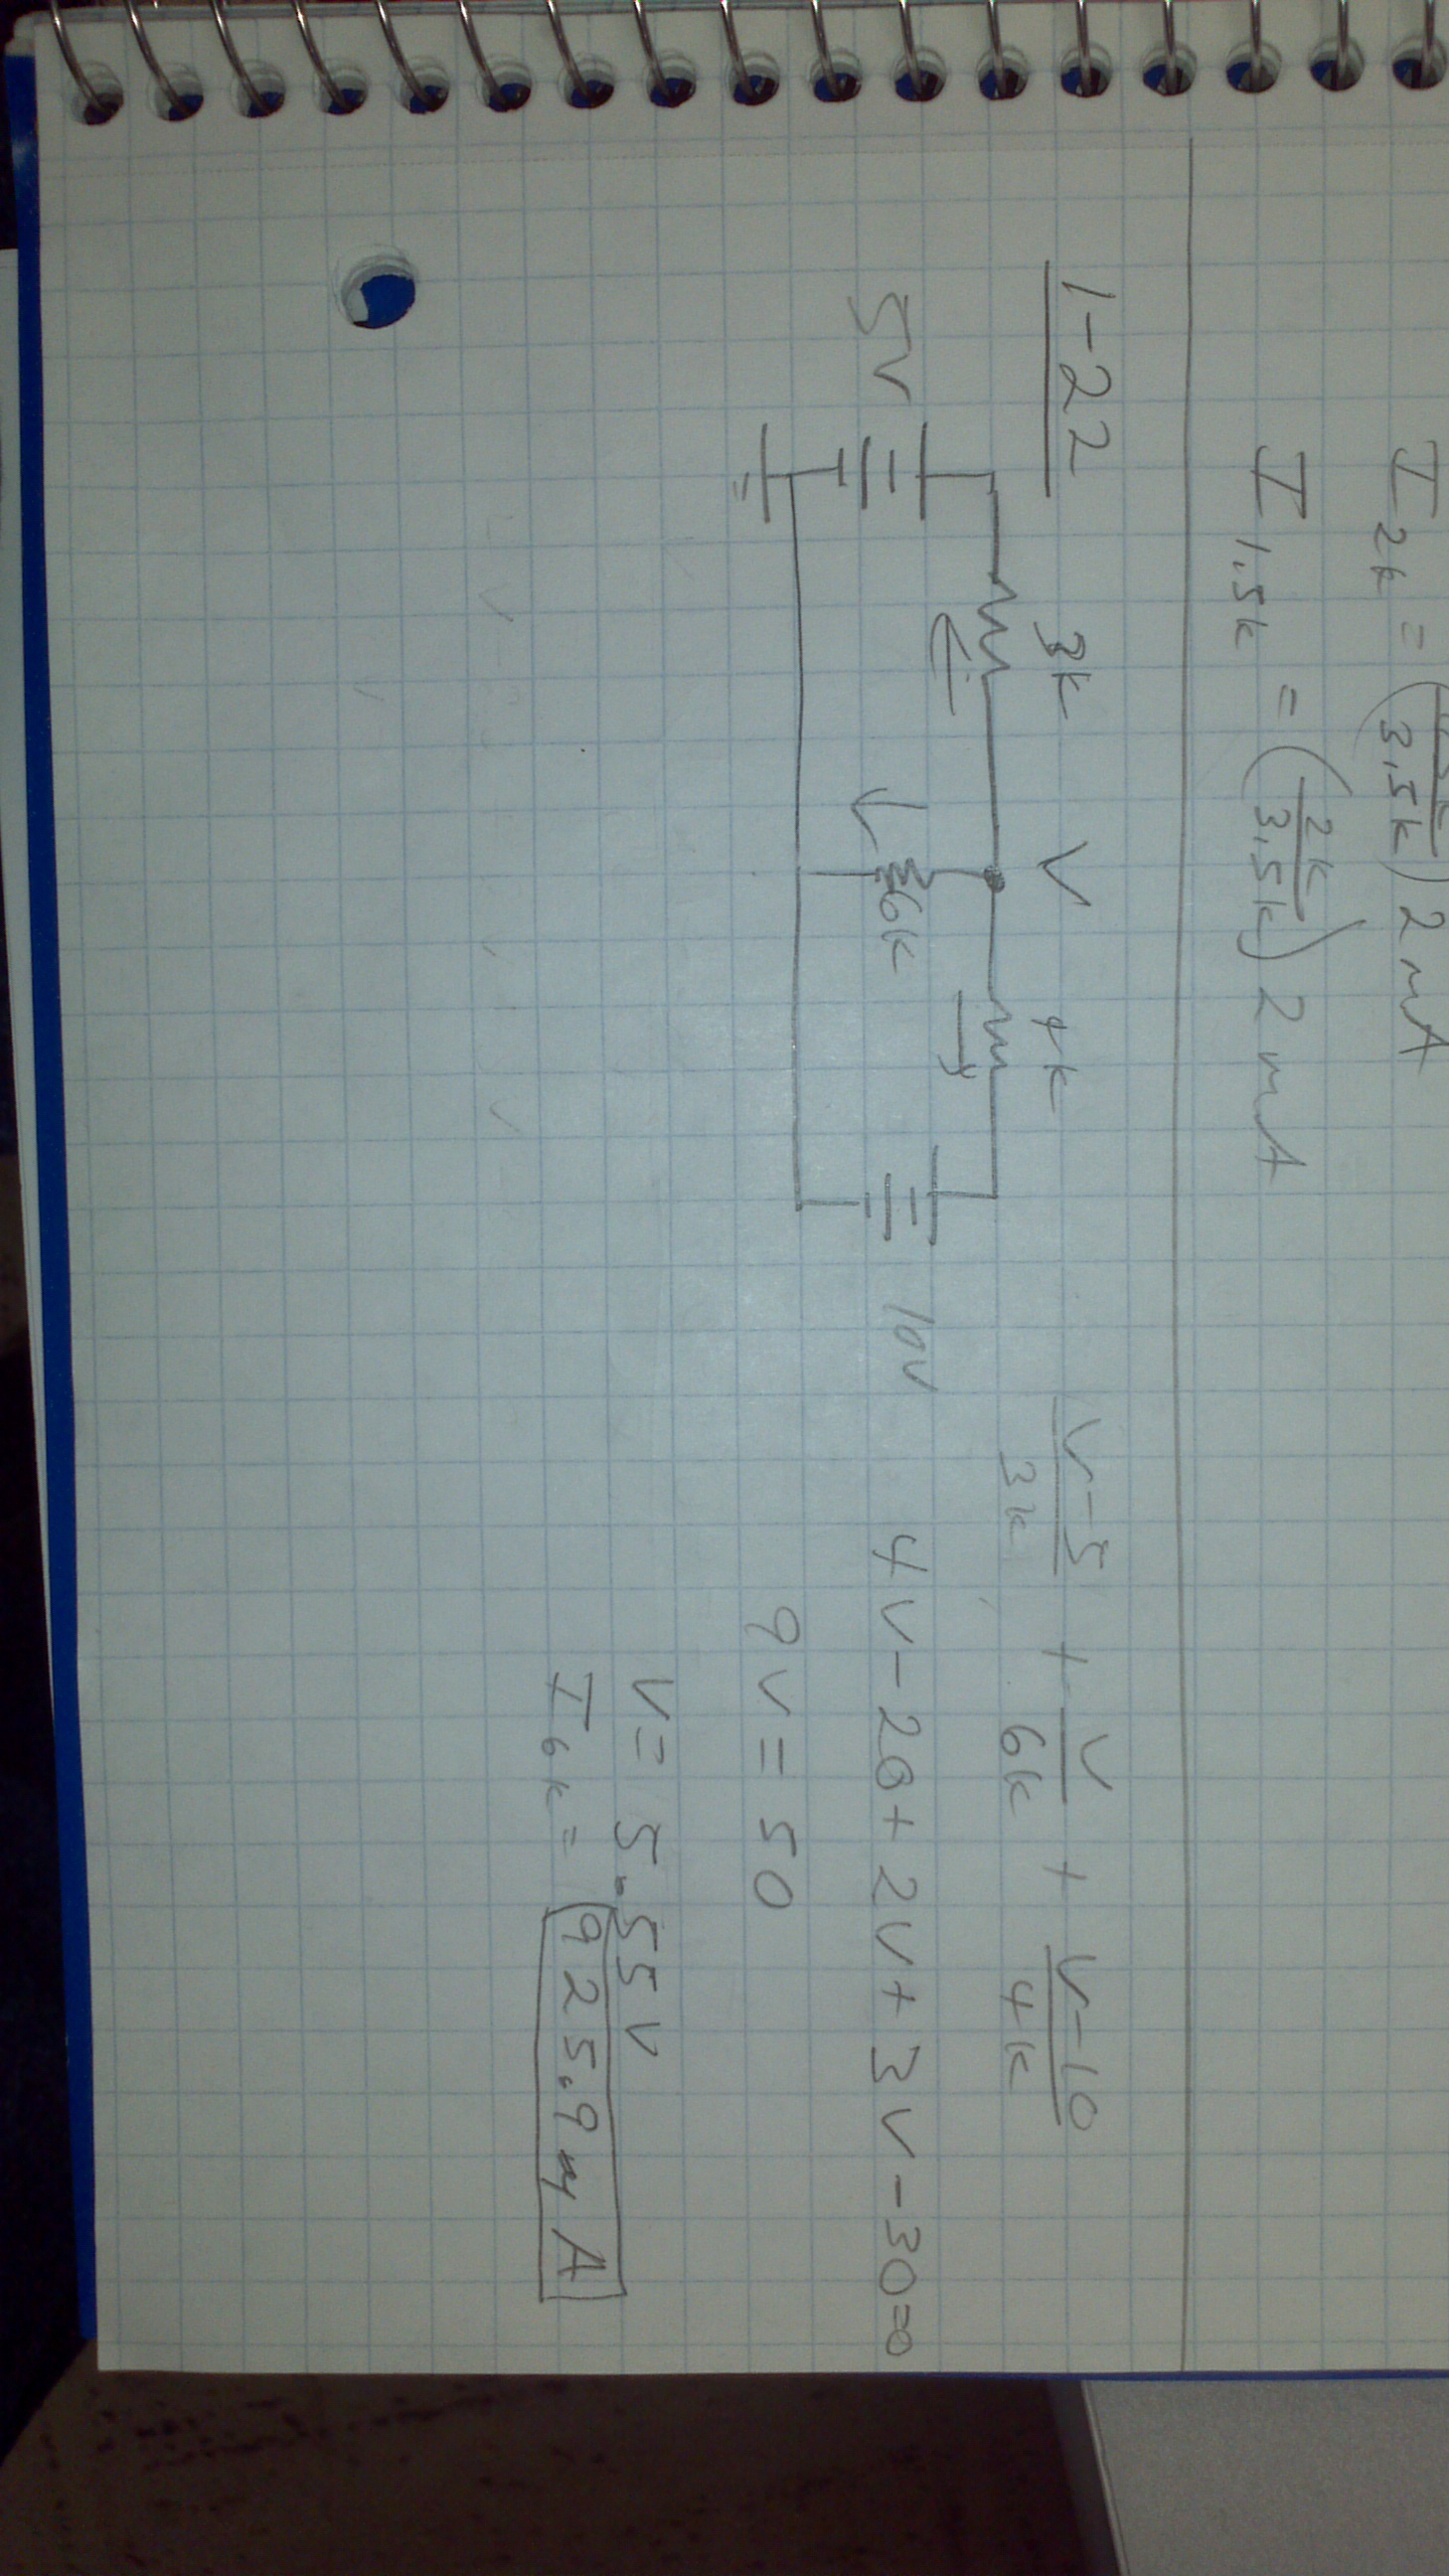 I 2k = ( / 3.5k ) 2 mA
I 1.5k = ( 2k / 3.5k ) 2 mA
1-22
3k V 4k
5V 6k 10V
V-5 / 3k + V / 6k + V-10 / 4k
4V-20+2V+3V-30=0
9V=50
V=5.55V
I 6k = 925.9 μA